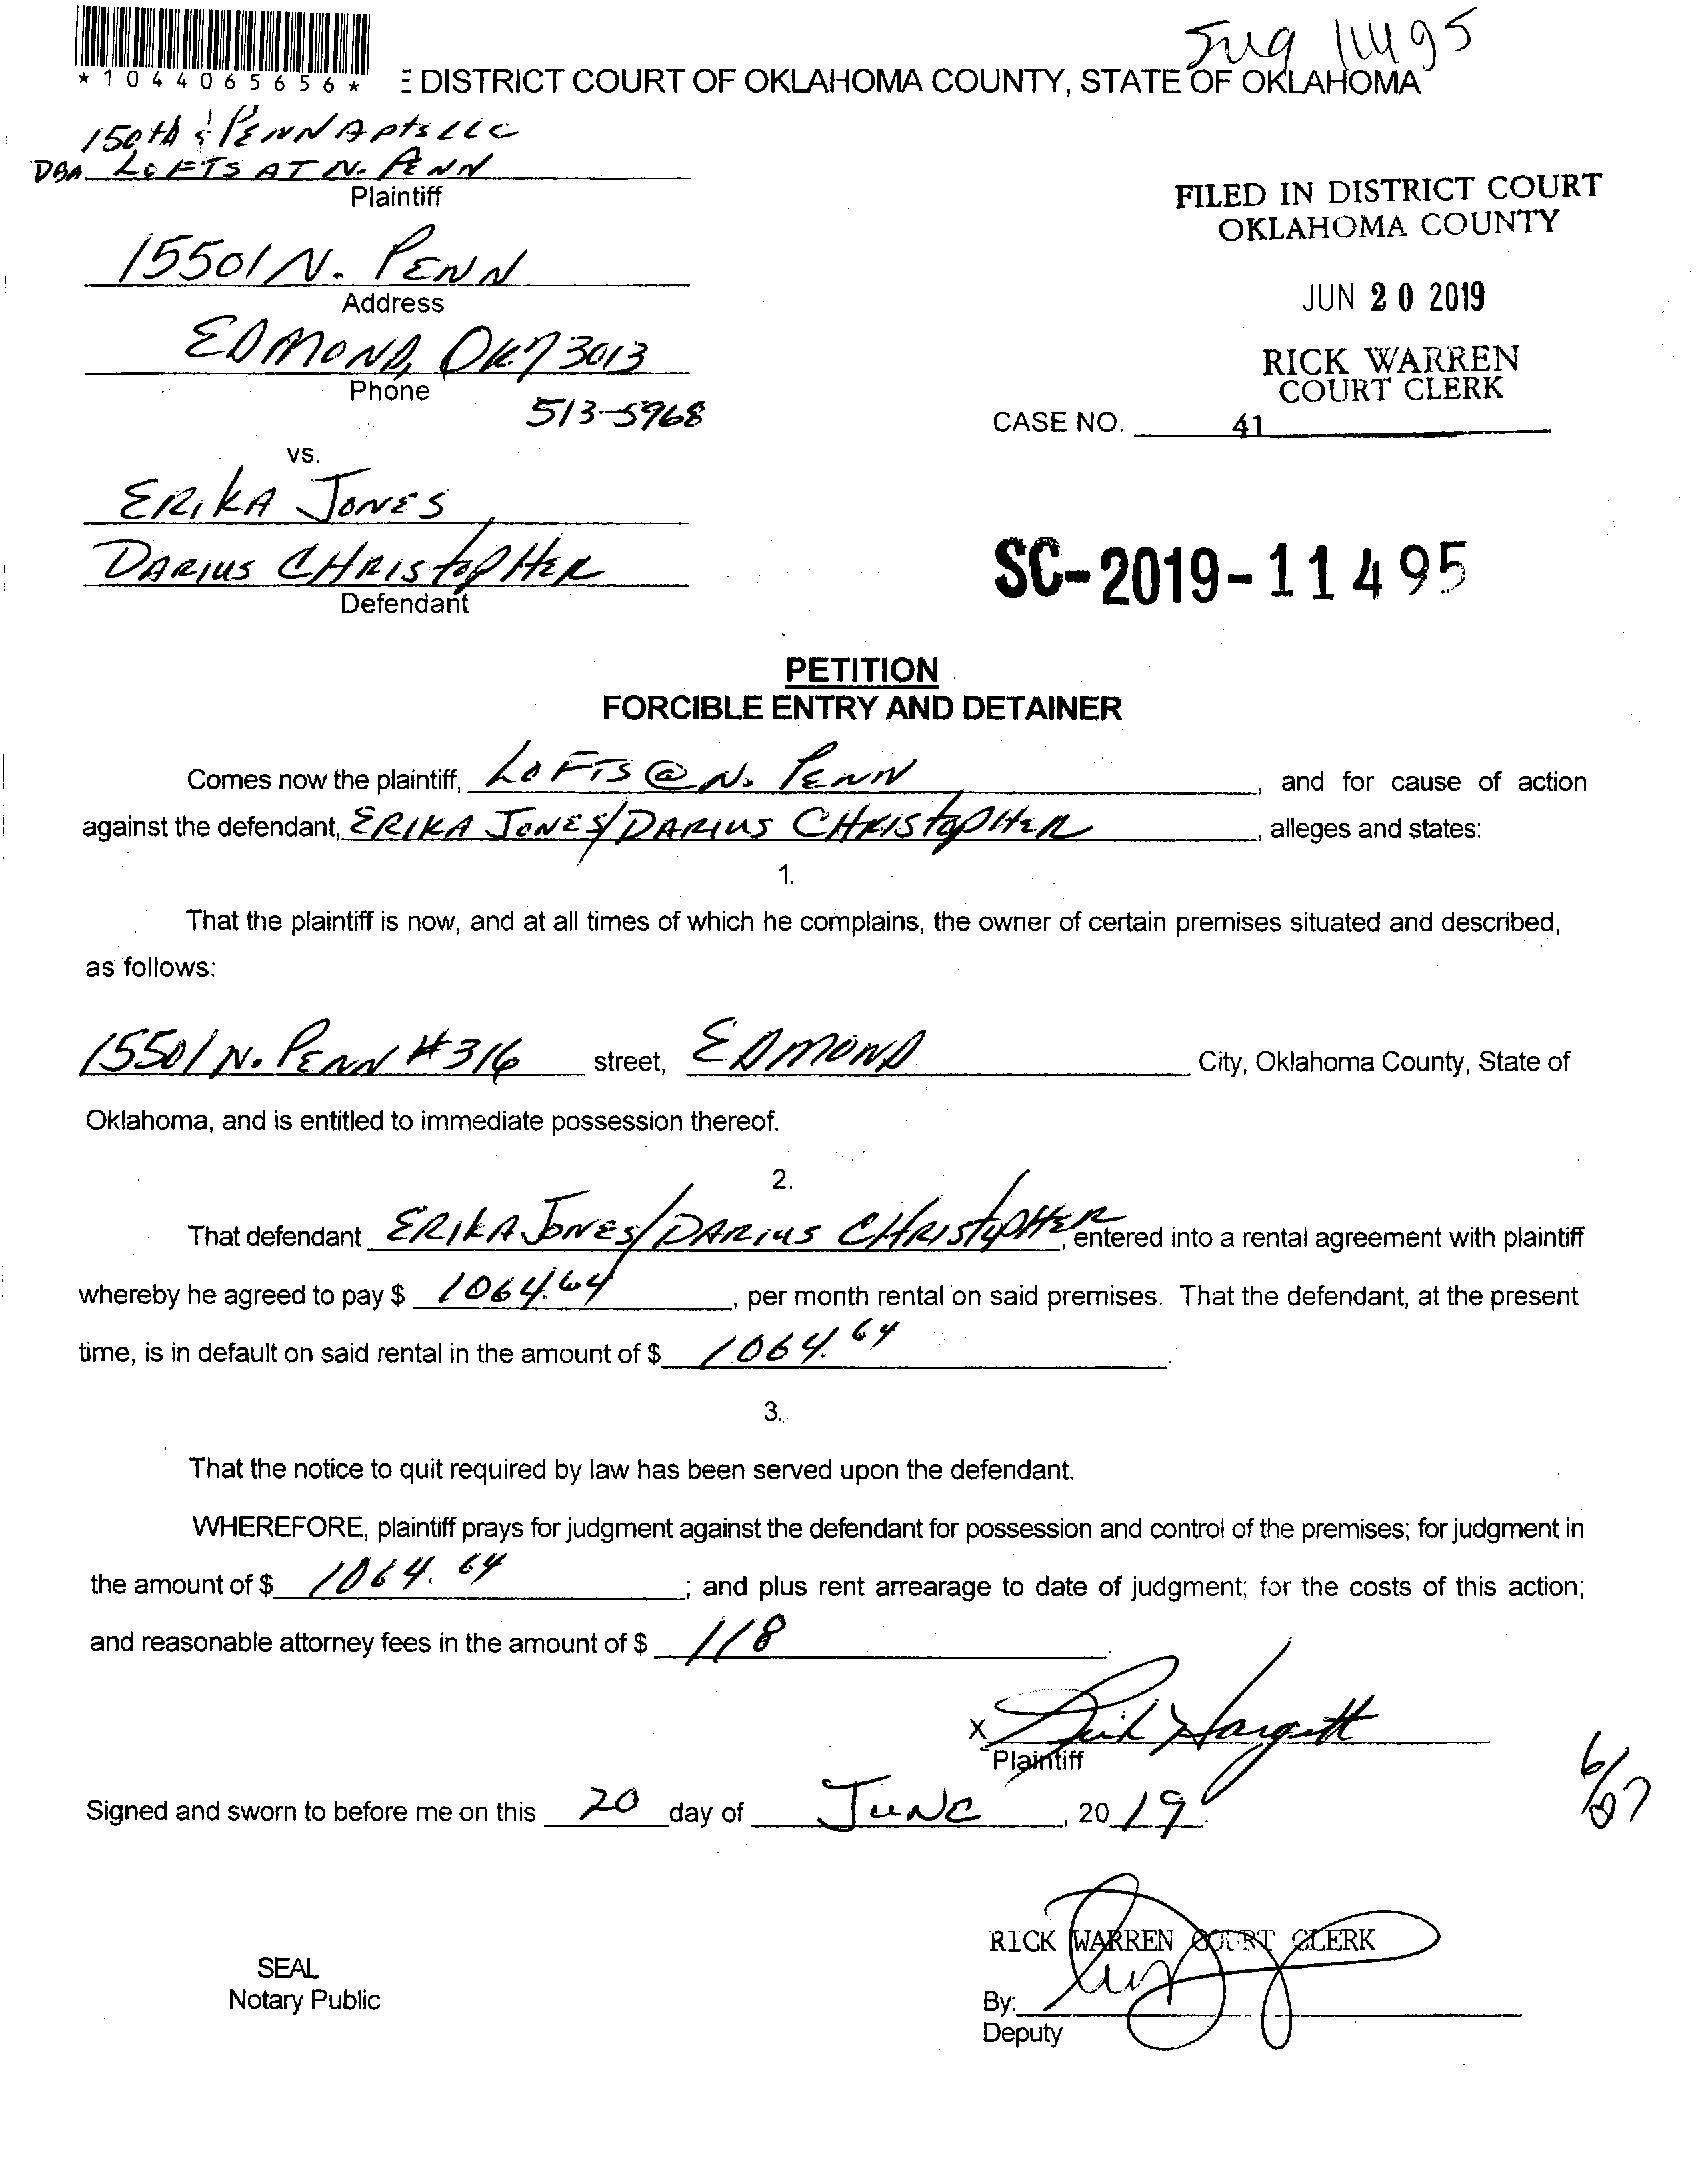 *1044065656*
DISTRICT COURT OF OKLAHOMA COUNTY, STATE OF OKLAHOMA
150th & PENN Apts LLC
DBA LOFTS AT N. PENN
Plaintiff
FILED IN DISTRICT COURT
OKLAHOMA COUNTY
15501 N. PENN
Address
JUN 20 2019
EDMOND, OK 73013
Phone
RICK WARREN
COURT CLERK
513-5968
CASE NO. 41
vs.
ERIKA JONES
DARIUS CHRISTOPHER
Defendant
SC-2019-11495
PETITION
FORCIBLE ENTRY AND DETAINER
Comes now the plaintiff, LOFTS @ N. PENN, and for cause of action
against the defendant, ERIKA JONES/DARIUS CHRISTOPHER, alleges and states:
1.
That the plaintiff is now, and at all times of which he complains, the owner of certain premises situated and described,
as follows:
15501 N. PENN #316 street, EDMOND City, Oklahoma County, State of
Oklahoma, and is entitled to immediate possession thereof.
2.
That defendant ERIKA JONES/DARIUS CHRISTOPHER, entered into a rental agreement with plaintiff
whereby he agreed to pay $ 1064.64, per month rental on said premises. That the defendant, at the present
time, is in default on said rental in the amount of $ 1064.64.
3.
That the notice to quit required by law has been served upon the defendant.
WHEREFORE, plaintiff prays for judgment against the defendant for possession and control of the premises; for judgment in
the amount of $ 1064.64; and plus rent arrearage to date of judgment; for the costs of this action;
and reasonable attorney fees in the amount of $ 118.
X
Plaintiff
Signed and sworn to before me on this 20 day of JUNE, 20 19.
RICK WARREN COURT CLERK
SEAL
Notary Public
By:
Deputy